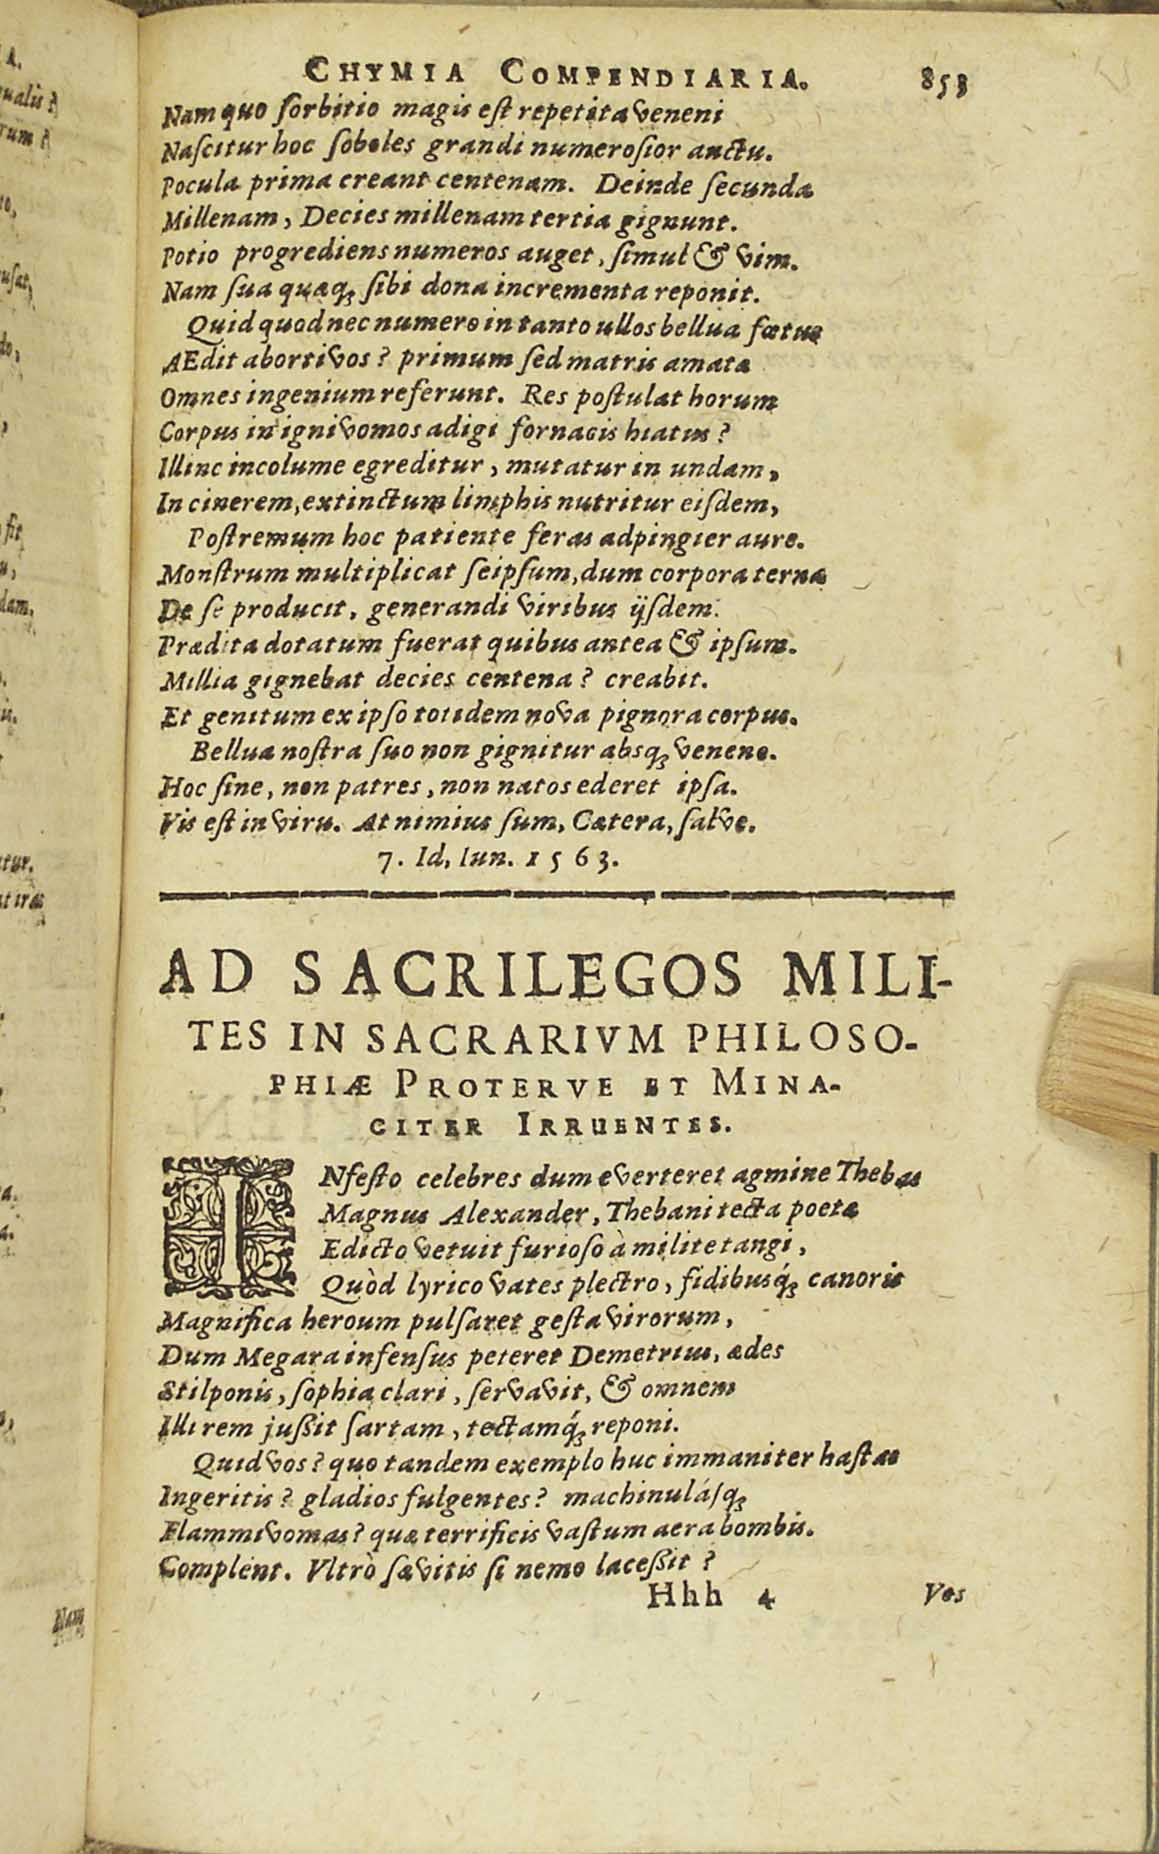 CHYMIA COMPENDIARIA. 853
Nam quo sorbitio magis est repetita veneni
Nascitur hoc soboles grandi numerosior auctu.
Pocula prima creant centenam. Deinde secunda
Millenam, Decies millenam tertia gignunt.
Potio progrediens numeros auget, simul & vim.
Nam sua quæq; sibi dona incrementa reponit.
Quid quod nec numero in tanto ullos bellua fœtus
AEdit abortivos? primum sed matris amata
Omnes ingenium referunt. Res postulat horum
Corpus in ignivomos adigi fornacis hiatus?
Illinc incolume egreditur, mutatur in undam,
In cinerem, extinctum limphis nutritur eisdem,
Postremum hoc patiente feras adpingier auro.
Monstrum multiplicat seipsum, dum corpora terna
De se producit, generandi viribus ijsdem.
Prædita dotatum fuerat quibus antea & ipsum.
Millia gignebat decies centena? creabit.
Et genitum ex ipso totidem nova pignora corpus.
Bellua nostra suo non gignitur absq; veneno.
Hoc sine, non patres, non natos ederet ipsa.
Vis est in viru. At nimius sum, Cætera, salve.
7. Id, Iun. 1563.
AD SACRILEGOS MILI-
TES IN SACRARIVM PHILOSO-
PHIÆ PROTERVE ET MINA-
CITER IRRUENTES.
INfesto celebres dum everteret agmine Thebas
Magnus Alexander, Thebani tecta poetæ
Edicto vetuit furioso à milite tangi,
Quòd lyrico vates plectro, fidibusq́; canoris
Magnifica heroum pulsaret gesta virorum,
Dum Megara infensus peteret Demetrius, ædes
Stilponis, sophia clari, servavit, & omnem
Illi rem jussit sartam, tectamq́; reponi.
Quid vos? quo tandem exemplo huc immaniter hastas
Ingeritis? gladios fulgentes? machinulásq;
Flammivomas? quæ terrificis vastum aera bombis.
Complent. Vltrò sævitis si nemo lacessit?
Hhh 4 Vos